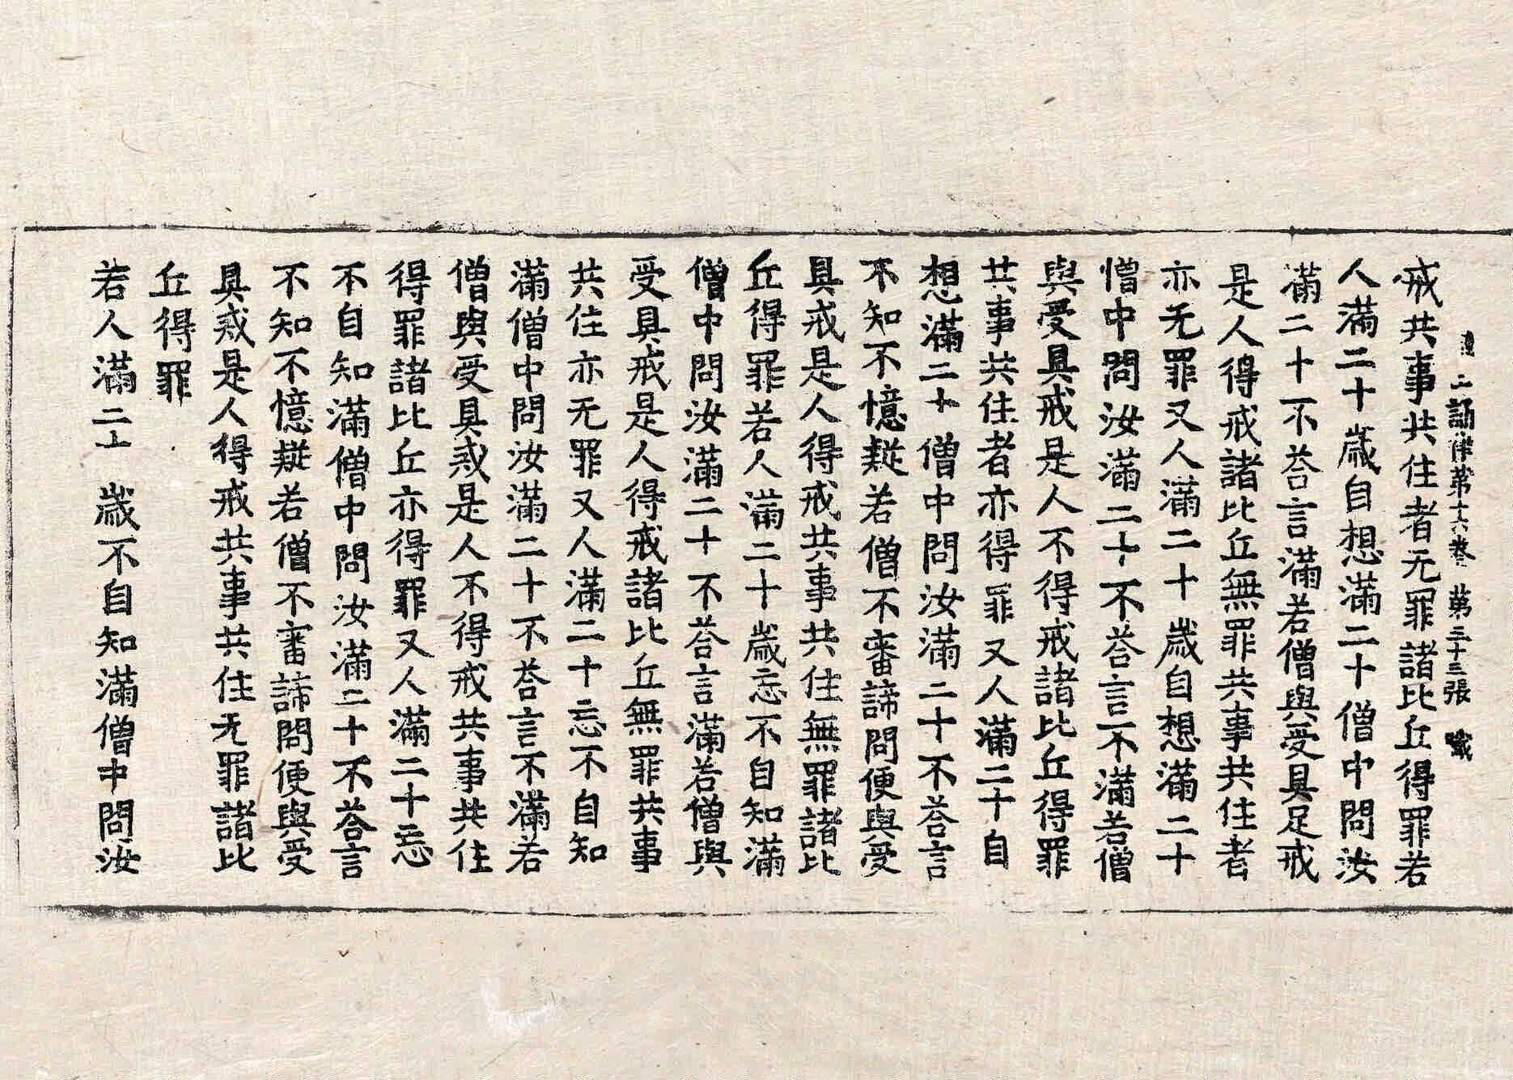 二誦律第十六卷　第三十三張
戒共事共住者无罪諸比丘得罪若
人滿二十歲自想滿二十僧中問汝
滿二十不荅言滿若僧與受具足戒
是人得戒諸比丘無罪共事共住者
亦无罪又人滿二十歲自想滿二十
僧中問汝滿二十不荅言不滿若僧
與受具戒是人不得戒諸比丘得罪
共事共住者亦得罪又人滿二十自
想滿二十僧中問汝滿二十不荅言
不知不憶疑若僧不審諦問便與受
具戒是人得戒共事共住無罪諸比
丘得罪若人滿二十歲忘不自知滿
僧中問汝滿二十不荅言滿若僧與
受具戒是人得戒諸比丘無罪共事
共住亦无罪又人滿二十忘不自知
滿僧中問汝滿二十不荅言不滿若
僧與受具戒是人不得戒共事共住
得罪諸比丘亦得罪又人滿二十忘
不自知滿僧中問汝滿二十不荅言
不知不憶疑若僧不審諦問便與受
具戒是人得戒共事共住无罪諸比
丘得罪
若人滿二十歲不自知滿僧中問汝